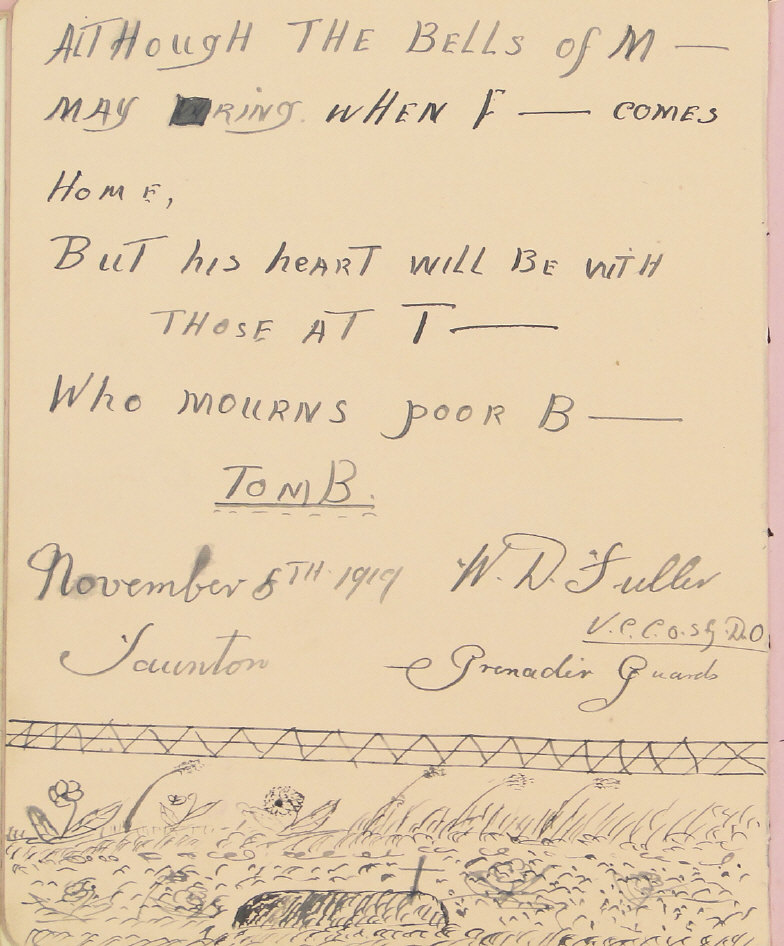 ALTHOUGH THE BELLS of M —
MAY RING. WHEN F — COMES
HOME,
BUT his heART WILL BE WITH
THOSE AT T —
Who MOURNS POOR B —
TOMB.
November 8TH 1919 W. D. Fuller
Taunton Grenadir Guards